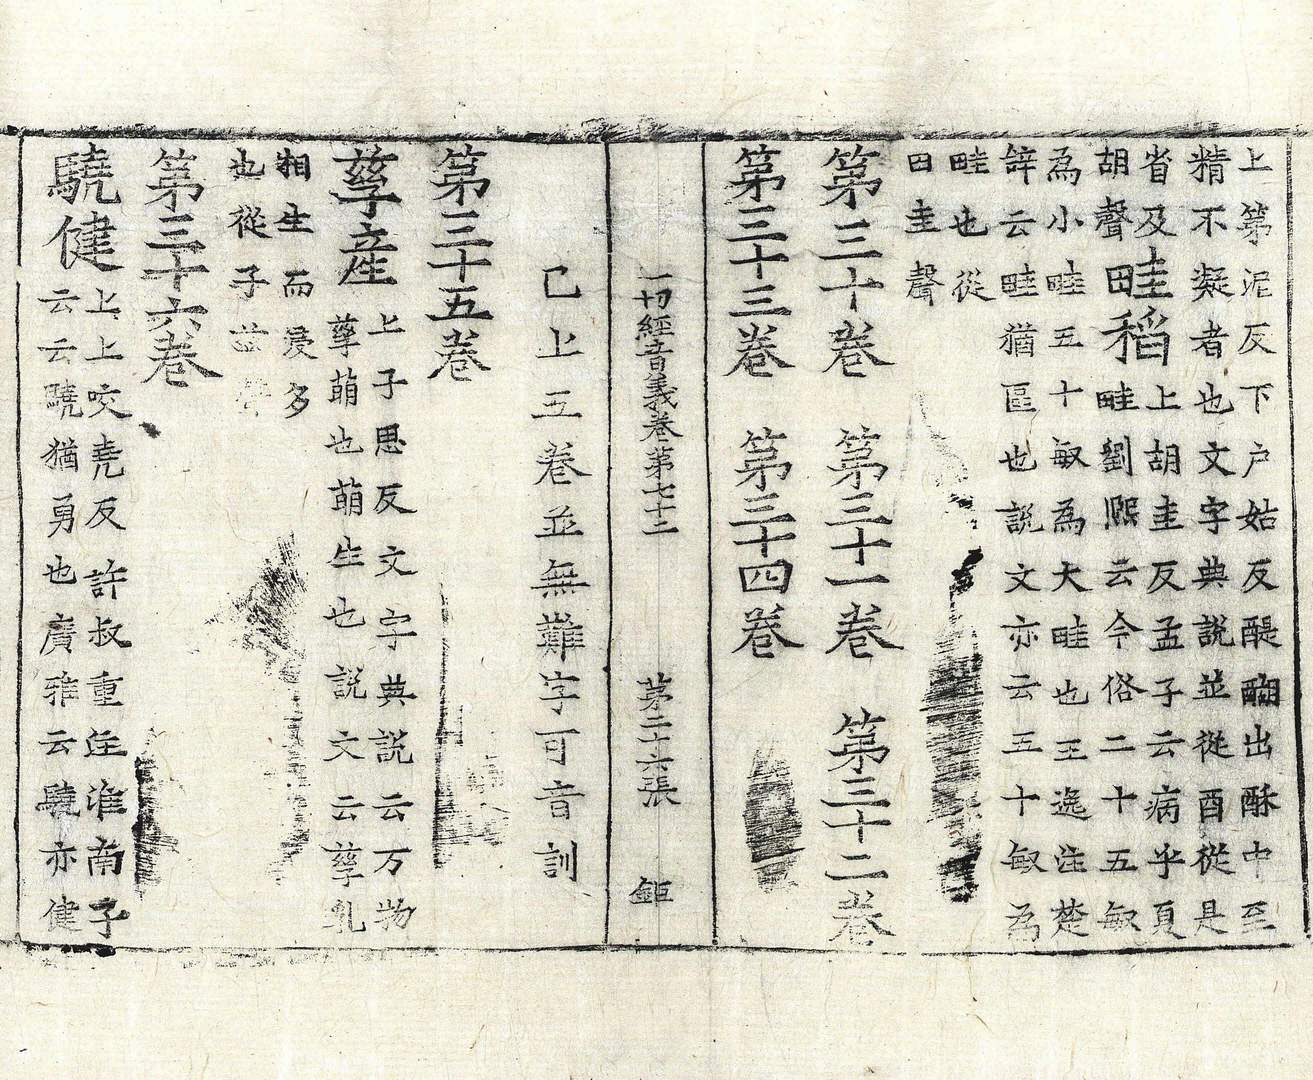 上第泥反下户姑反醍醐出酥中至
精不凝者也文字典說並從酉從是
省及
胡聲
畦稻
上胡圭反孟子云病乎夏
畦劉熙云今俗二十五敏
為小畦五十敏為大畦也王逸注楚
辞云畦猶區也說文亦云五十敏為
畦也從
田圭聲
第三十卷　第三十一卷　第三十二卷
第三十三卷　第三十四卷
一切經音義卷第七十二　第二十六張　鉅
已上五卷並無難字可音訓
第三十五卷
孳產
上子思反文字典說云万物
孳萌也萌生也說文云孳乳
相生而浸多
也從子茲聲
第三十六卷
驍健
上上咬堯反許叔重注淮南子
云云驍猶勇也廣雅云驍亦健